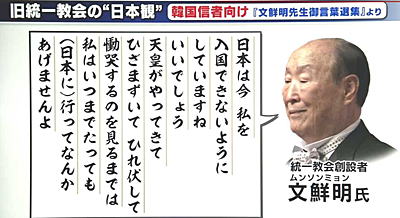 旧統一教会の“日本観”
韓国信者向け『文鮮明先生御言葉選集』より
日本は今 私を
入国できないように
していますね
いいでしょう
天皇がやってきて
ひざまずいて ひれ伏して
慟哭するのを見るまでは
私はいつまでたっても
(日本に)行ってなんか
あげませんよ
統一教会創設者
ムンソンミョン
文鮮明氏